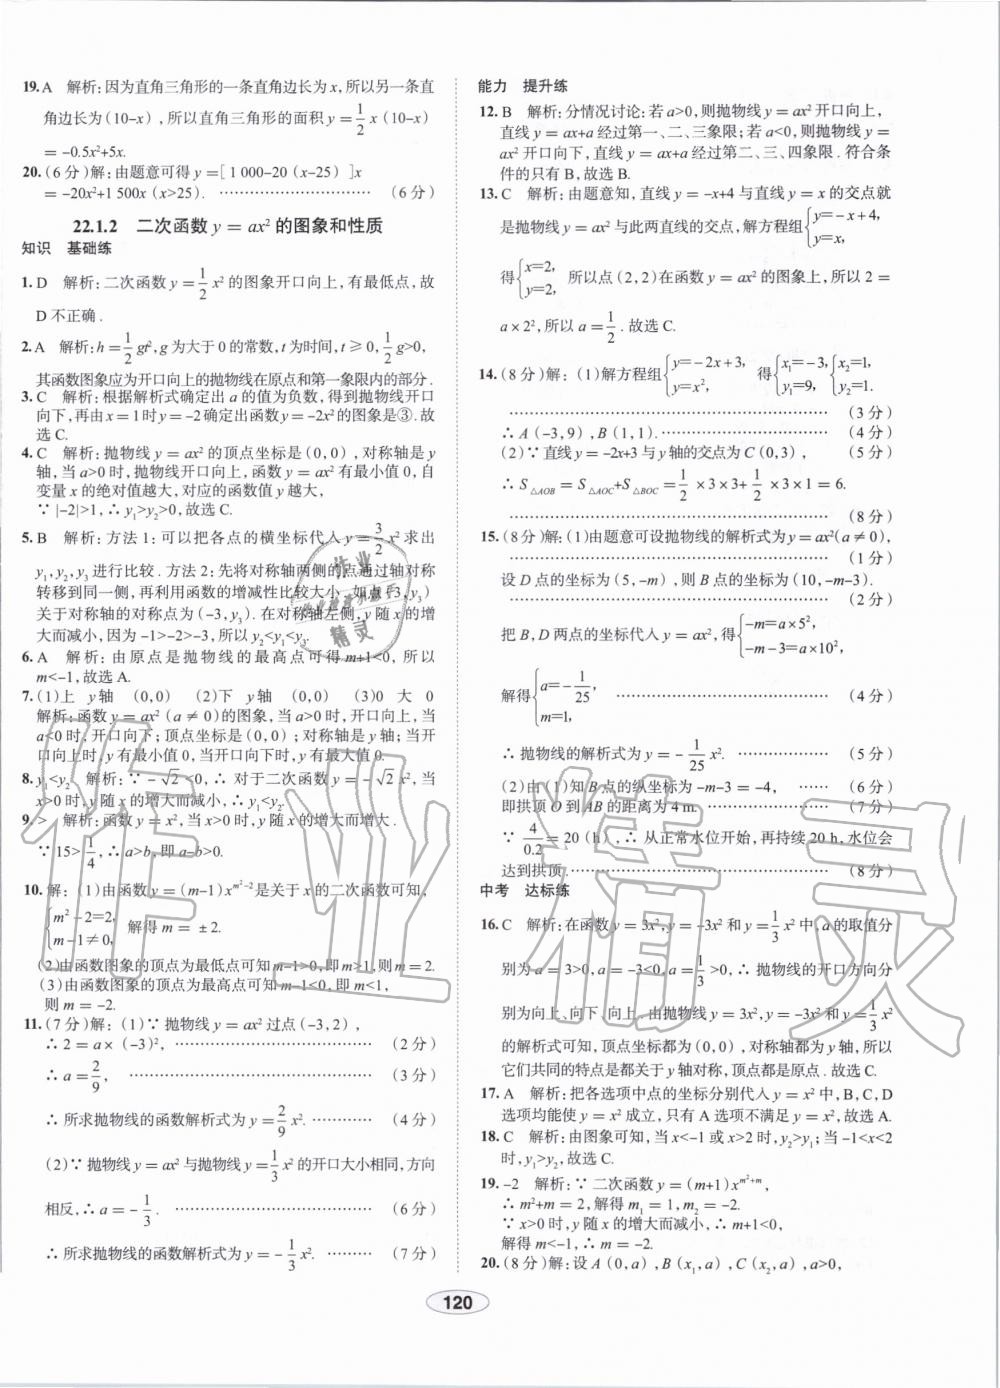 19. A 解析:因为直角三角形的一条直角边长为 x,所以另一条直
角边长为(10-x),所以直角三角形的面积 y=1/2 x(10-x)
=-0.5x²+5x.
20.(6分)解:由题意可得 y=[1 000-20(x-25)]x
=-20x²+1 500x(x>25). ……………………(6分)
22.1.2 二次函数 y=ax² 的图象和性质
知识 基础练
1. D 解析:二次函数 y=1/2 x² 的图象开口向上,有最低点,故
D 不正确.
2. A 解析:h=1/2 gt²,g 为大于 0 的常数,t 为时间,t≥0,1/2 g>0,
其函数图象应为开口向上的抛物线在原点和第一象限内的部分.
3. C 解析:根据解析式确定出 a 的值为负数,得到抛物线开口
向下,再由 x=1 时 y=-2 确定出函数 y=-2x² 的图象是③.故
选 C.
4. C 解析:抛物线 y=ax² 的顶点坐标是(0,0),对称轴是 y
轴,当 a>0 时,抛物线开口向上,函数 y=ax² 有最小值 0,自
变量 x 的绝对值越大,对应的函数值 y 越大,
∵|-2|>1,∴y₁>y₂>0,故选 C.
5. B 解析:方法 1:可以把各点的横坐标代入 y=3/2 x² 求出
y₁,y₂,y₃ 进行比较.方法 2:先将对称轴两侧的点通过对称
转移到同一侧,再利用函数的增减性比较大小,如点(3,y₃)
关于对称轴的对称点为(-3,y₃).在对称轴左侧,y 随 x 的增
大而减小,因为-1>-2>-3,所以 y₁<y₂<y₃.
6. A 解析:由原点是抛物线的最高点可得 m+1<0,所以
m<-1,故选 A.
7.(1)上 y轴 (0,0) (2)下 y轴 (0,0) (3)0 大 0
解析:函数 y=ax²(a≠0)的图象,当 a>0 时,开口向上,当
a<0 时,开口向下;顶点坐标是(0,0);对称轴是 y 轴;当开
口向上时,y 有最小值 0,当开口向下时,y 有最大值 0.
8. y₁<y₂ 解析:∵-√2<0,∴对于二次函数 y=-√2 x²,当
x>0 时,y 随 x 的增大而减小,∴y₁<y₂.
9. > 解析:函数 y=x²,当 x>0 时,y 随 x 的增大而增大.
∵15>1/4,∴a>b,即 a-b>0.
10. 解:(1)由函数 y=(m-1)x^(m²-2) 是关于 x 的二次函数可知,
{m²-2=2, m-1≠0, 解得 m=±2.
(2)由函数图象的顶点为最低点可知 m-1>0,即 m>1,则 m=2.
(3)由函数图象的顶点为最高点可知 m-1<0,即 m<1,
则 m=-2.
11.(7分)解:(1)∵抛物线 y=ax² 过点(-3,2),
∴2=a×(-3)², ……………………(2分)
∴a=2/9, ……………………(3分)
∴所求抛物线的函数解析式为 y=2/9 x². …………(4分)
(2)∵抛物线 y=ax² 与抛物线 y=1/3 x² 的开口大小相同,方向
相反,∴a=-1/3. ……………………(6分)
∴所求抛物线的函数解析式为 y=-1/3 x². …………(7分)
能力 提升练
12. B 解析:分情况讨论:若 a>0,则抛物线 y=ax² 开口向上,
直线 y=ax+a 经过第一、二、三象限;若 a<0,则抛物线 y=ax²
开口向下,直线 y=ax+a 经过第二、三、四象限.符合条
件的只有 B,故选 B.
13. C 解析:由题意知,直线 y=-x+4 与直线 y=x 的交点就
是抛物线 y=ax² 与此两直线的交点,解方程组{y=-x+4, y=x,
得{x=2, y=2, 所以点(2,2)在函数 y=ax² 的图象上,所以 2=
a×2²,所以 a=1/2.故选 C.
14.(8分)解:(1)解方程组{y=-2x+3, y=x², 得{x₁=-3, y₁=9, {x₂=1, y₂=1.
……………………(3分)
∴A(-3,9),B(1,1). ……………………(4分)
(2)∵直线 y=-2x+3 与 y 轴的交点为 C(0,3), (5分)
∴S△AOB=S△AOC+S△BOC=1/2×3×3+1/2×3×1=6.
……………………(8分)
15.(8分)解:(1)由题意可设抛物线的解析式为 y=ax²(a≠0),
……………………(1分)
设 D 点的坐标为(5,-m),则 B 点的坐标为(10,-m-3).
……………………(2分)
把 B,D 两点的坐标代入 y=ax²,得{-m=a×5², -m-3=a×10²,
解得{a=-1/25, m=1, ……………………(4分)
∴抛物线的解析式为 y=-1/25 x². ……………(5分)
(2)由(1)知 B 点的纵坐标为-m-3=-4, ……(6分)
即拱顶 O 到 AB 的距离为 4 m. ……………(7分)
∵4/0.2=20(h),∴从正常水位开始,再持续 20 h,水位会
达到拱顶. ……………………(8分)
中考 达标练
16. C 解析:在函数 y=3x²,y=-3x² 和 y=1/3 x² 中,a 的取值分
别为 a=3>0,a=-3<0,a=1/3>0,∴抛物线的开口方向分
别为向上、向下、向上,由抛物线 y=3x²,y=-3x² 和 y=1/3 x²
的解析式可知,顶点坐标都为(0,0),对称轴都为 y 轴,所以
它们共同的特点是都关于 y 轴对称,顶点都是原点.故选 C.
17. A 解析:把各选项中点的坐标分别代入 y=x² 中,B,C,D
选项均能使 y=x² 成立,只有 A 选项不满足 y=x²,故选 A.
18. C 解析:由图象可知,当 x<-1 或 x>2 时,y₂>y₁;当-1<x<2
时,y₁>y₂,故选 C.
19. -2 解析:∵二次函数 y=(m+1)x^(m²+m),
∴m²+m=2,解得 m₁=1,m₂=-2.
∵x>0 时,y 随 x 的增大而减小,∴m+1<0,
解得 m<-1,∴m=-2.
20.(8分)解:设 A(0,a),B(x₁,a),C(x₂,a),
120
作业精灵